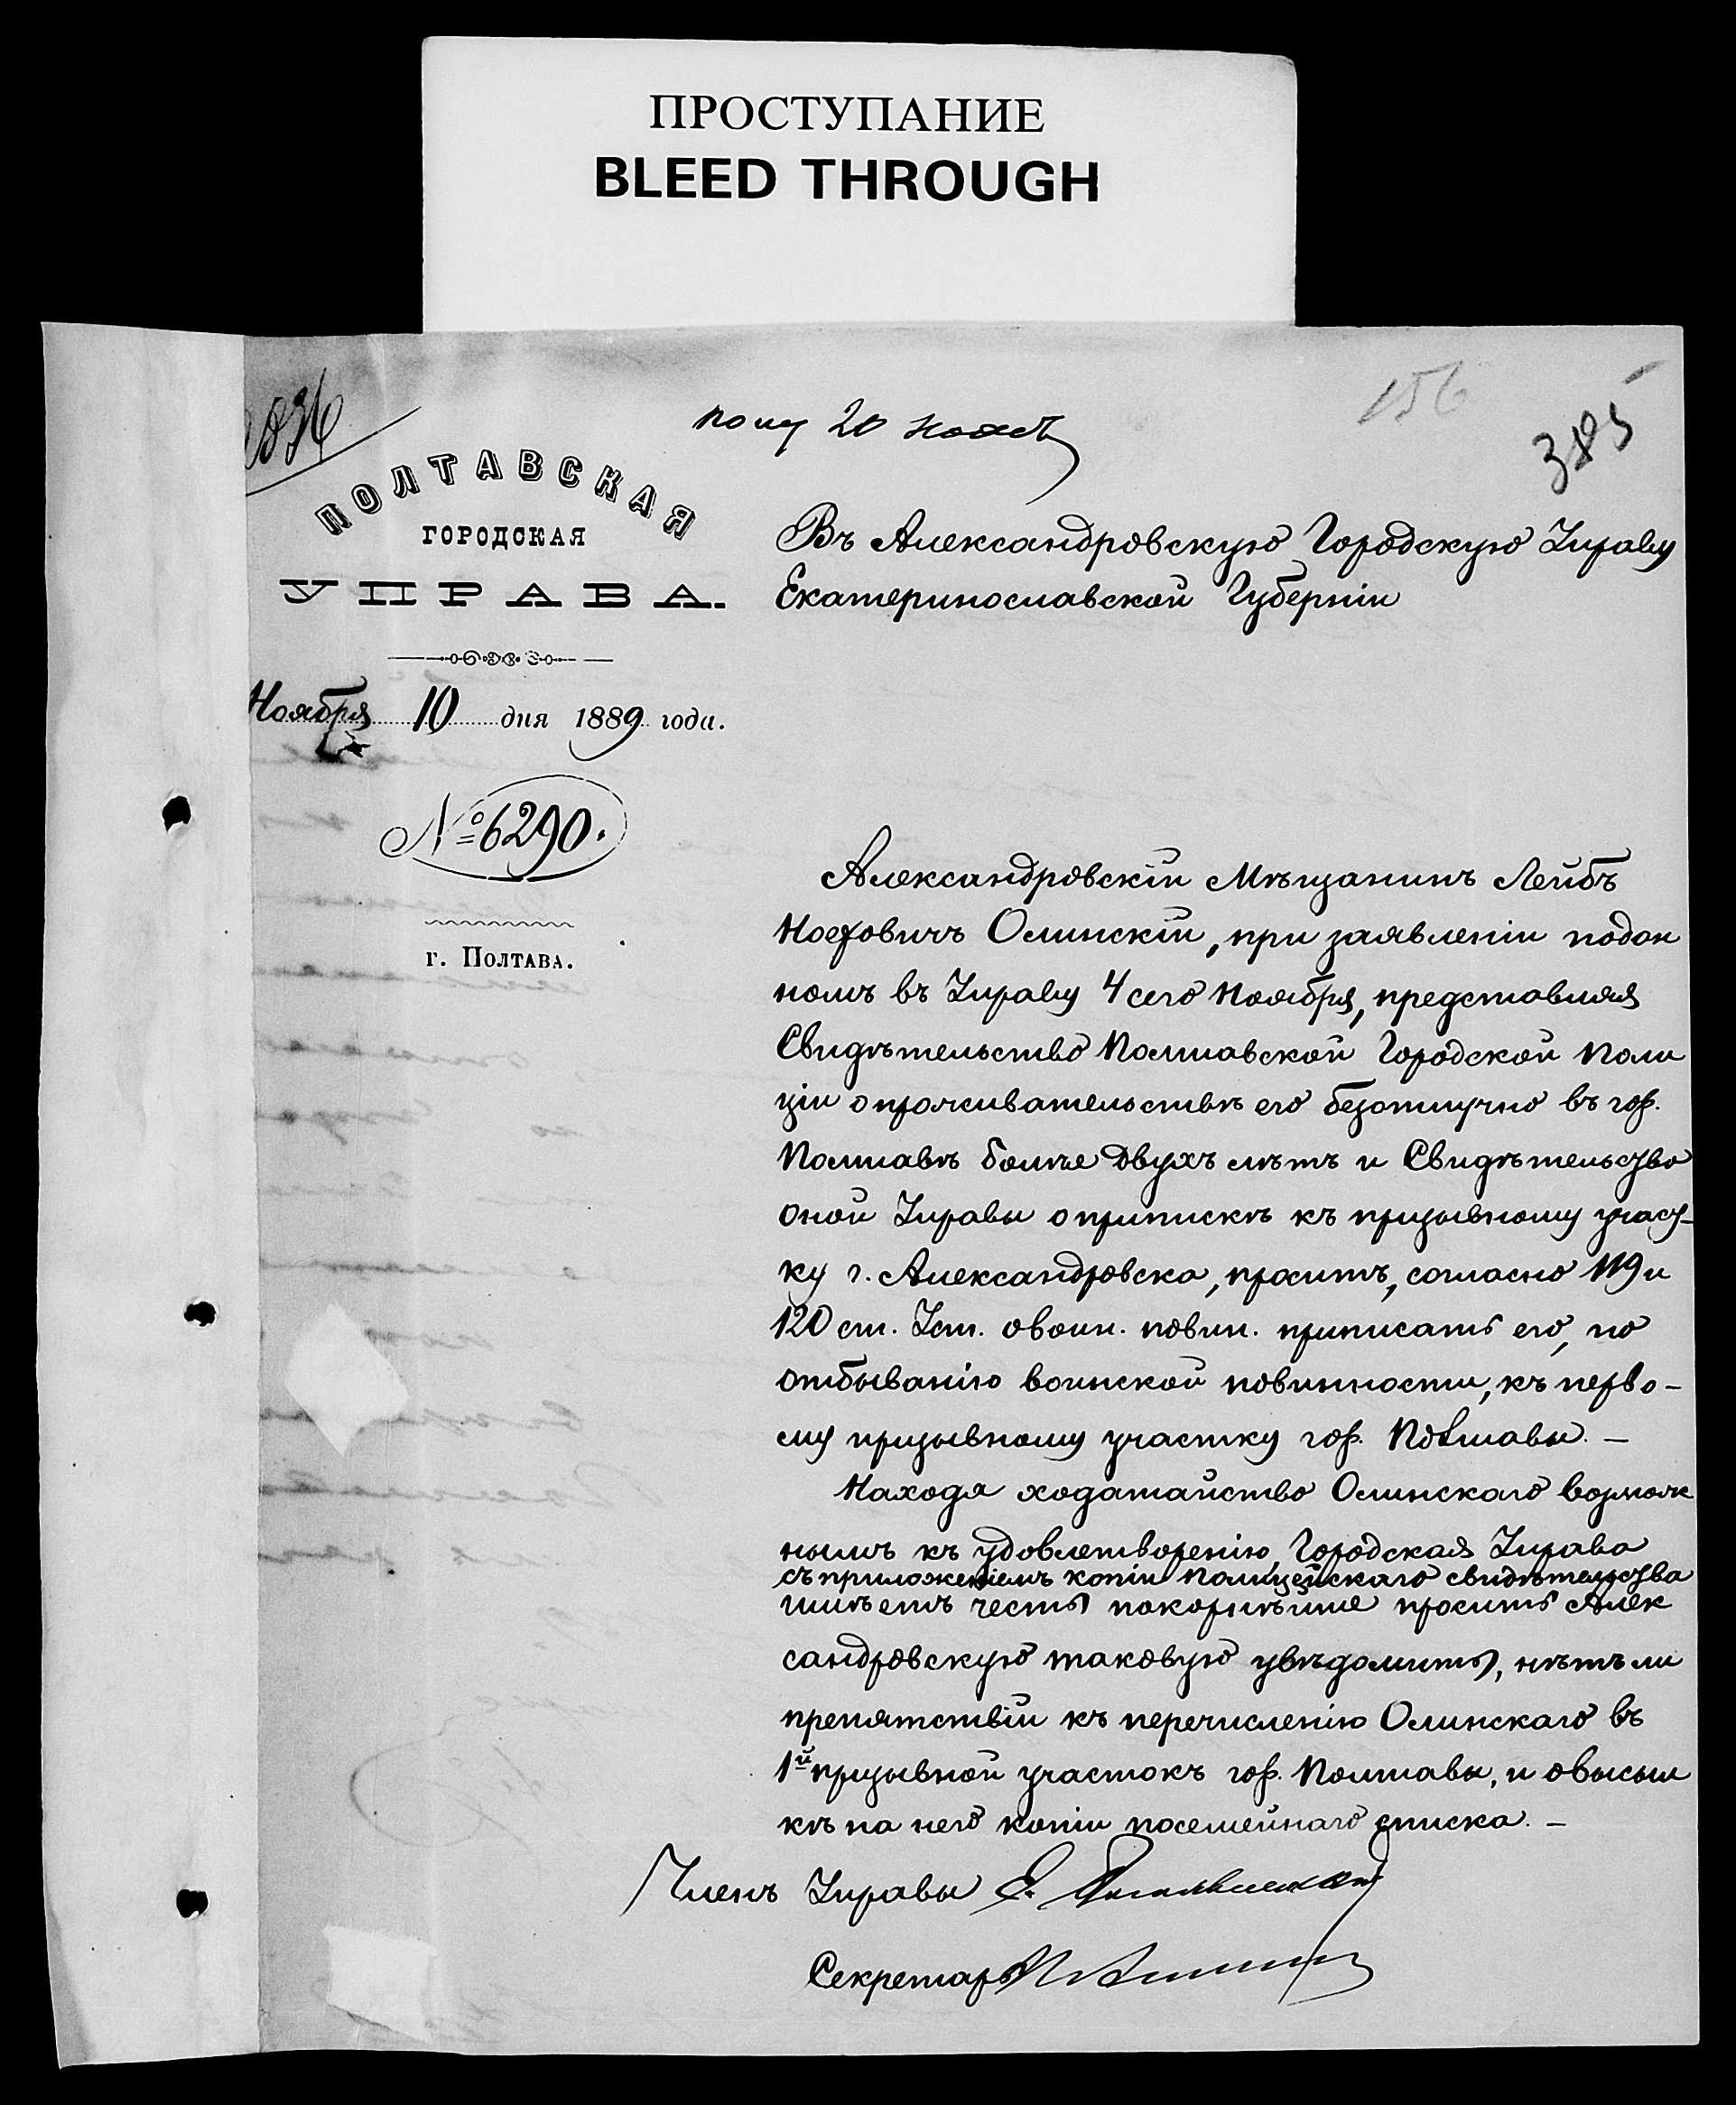 ПРОСТУПАНИЕ
BLEED THROUGH
156
385
пол 20 нояб
ПОЛТАВСКАЯ
ГОРОДСКАЯ
УПРАВА.
Ноября 10 дня 1889 года.
№ 6290.
г. Полтава.
Въ Александровскую Городскую Управу
Екатеринославской Губерніи
Александровскій Мѣщанинъ Лейбъ
Ноеховичъ Олинскій, при заявленіи подан
номъ въ Управу 4 сего Ноября, представляя
Свидѣтельство Полтавской Городской Поли
ціи о проживательствѣ его безотлучно въ гор.
Полтавѣ болѣе двухъ лѣтъ и Свидѣтельство
оной Управы о припискѣ къ призывному участ-
ку г. Александровска, проситъ, согласно 119 и
120 ст. Уст. о воин. повин. приписать его, по
отбыванію воинской повинности, къ перво-
му призывному участку гор. Полтавы. —
Находя ходатайство Олинскаго возмож
нымъ къ удовлетворенію, Городская Управа
съ приложеніемъ копіи Полицейскаго свидѣтельства
имѣетъ честь покорнѣйше просить Алек
сандровскую таковую увѣдомить, нѣтъ ли
препятствій къ перечисленію Олинскаго въ
1й призывной участокъ гор. Полтавы, и о высыл
кѣ на него копіи посемейнаго списка. —
Членъ Управы Е.
Секретарь